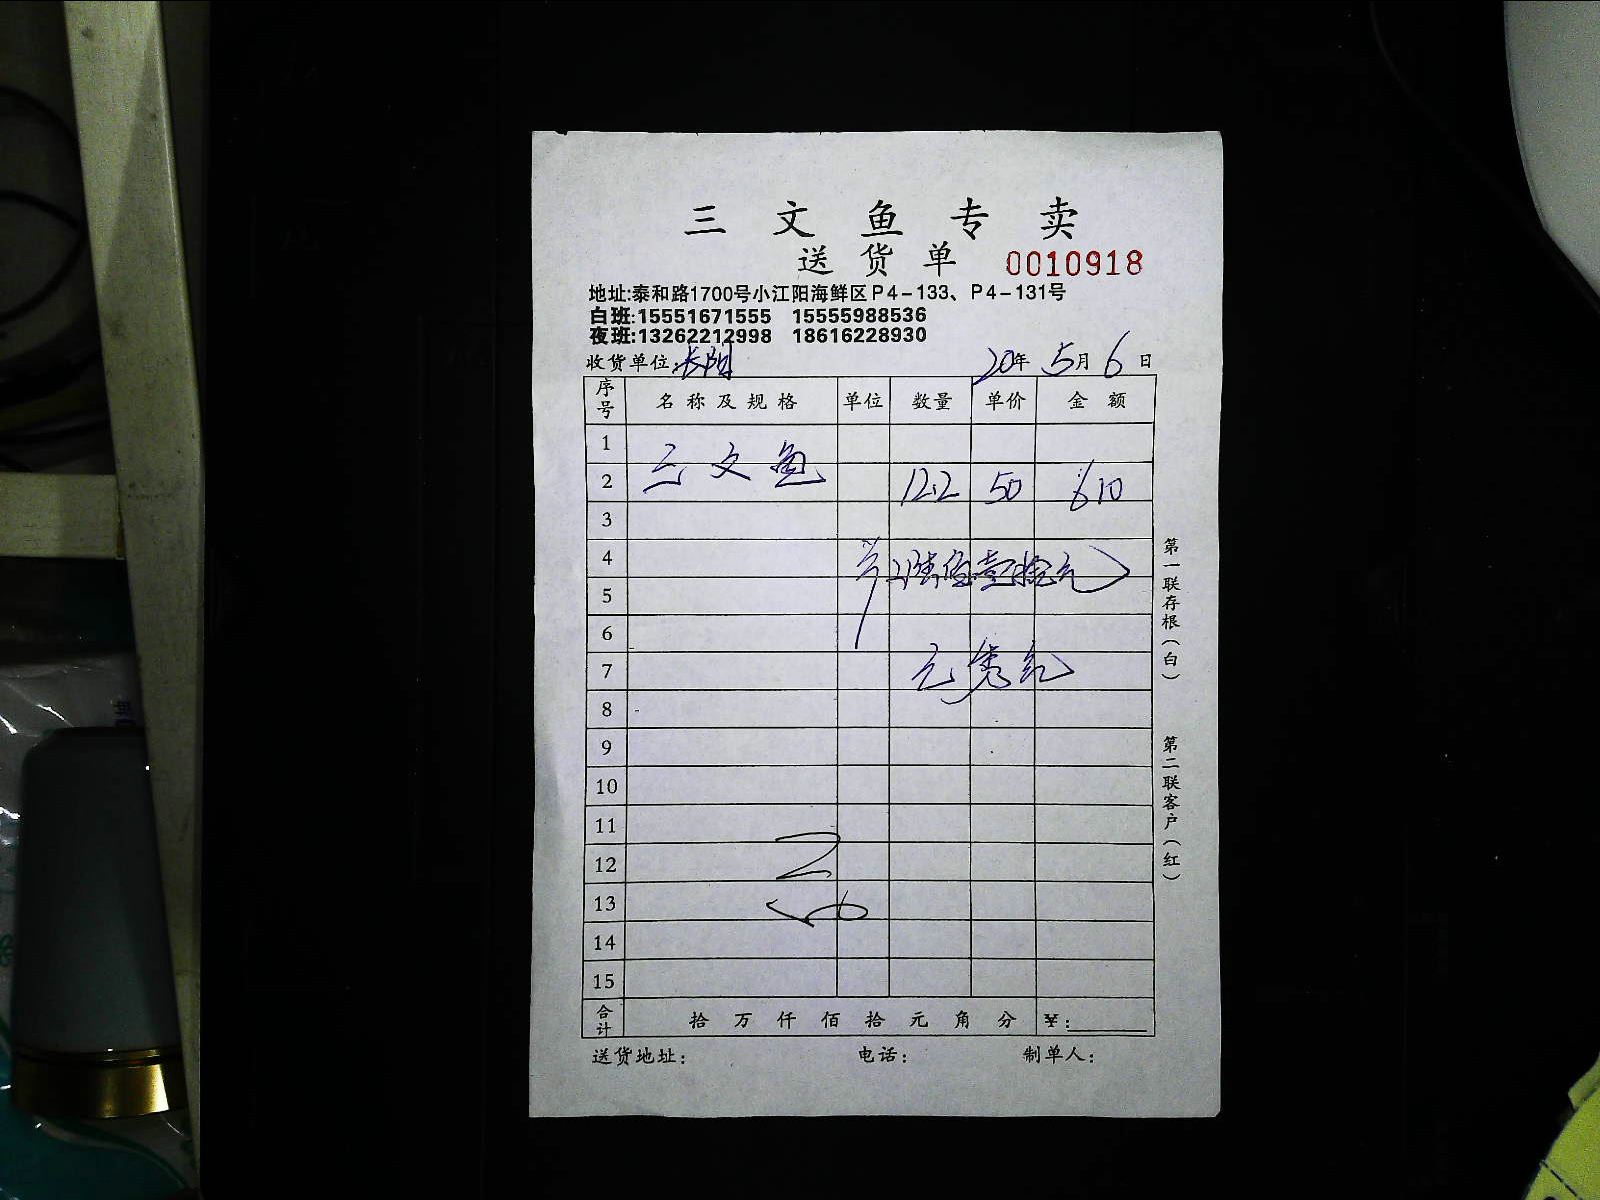 三文鱼专卖
送货单 0010918
地址:泰和路1700号小江阳海鲜区P4-133、P4-131号
白班:15551671555 15555988536
夜班:13262212998 18616228930
收货单位: 长阳 20年 5月 6日
序号 名称及规格 单位 数量 单价 金额
1
2 三文鱼 12.2 50 610
3
4
陆佰壹拾元
5
6
7
8
9
10
11
12
13
14
15
合计 拾 万 仟 佰 拾 元 角 分 ¥:
送货地址: 电话: 制单人:
第一联存根(白)
第二联客户(红)